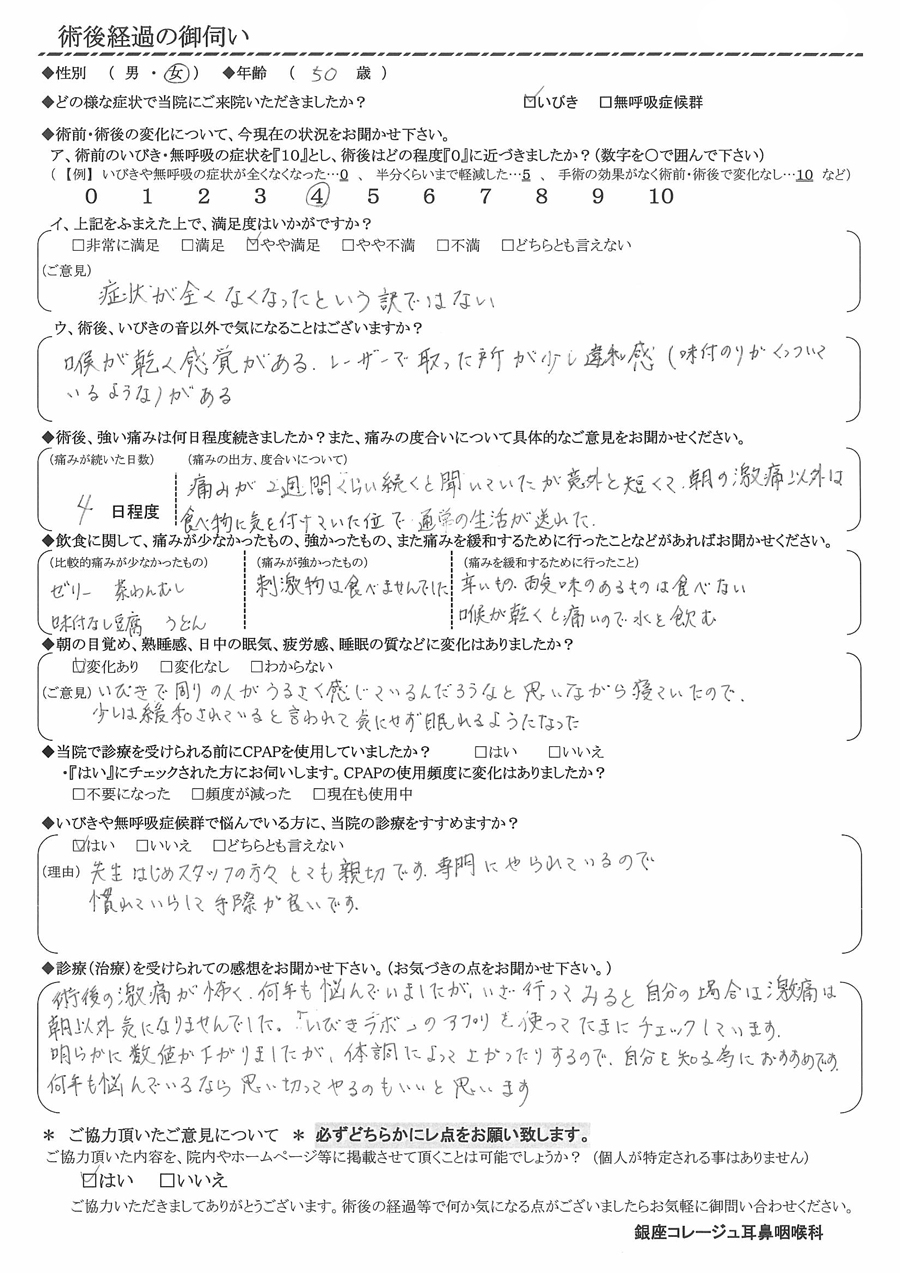 術後経過の御伺い
◆性別　( 男 ・ 女 )　◆年齢　( 50 歳 )
◆どの様な症状で当院にご来院いただきましたか？　☑いびき　□無呼吸症候群
◆術前・術後の変化について、今現在の状況をお聞かせ下さい。
ア、術前のいびき・無呼吸の症状を『10』とし、術後はどの程度『0』に近づきましたか？(数字を〇で囲んで下さい)
(【例】 いびきや無呼吸の症状が全くなくなった…0 、 半分くらいまで軽減した…5 、 手術の効果がなく術前・術後で変化なし…10 など)
0　1　2　3　4　5　6　7　8　9　10
イ、上記をふまえた上で、満足度はいかがですか？
□非常に満足　□満足　☑やや満足　□やや不満　□不満　□どちらとも言えない
(ご意見)
症状が全くなくなったという訳ではない
ウ、術後、いびきの音以外で気になることはございますか？
喉が乾く感覚がある. レーザーで取った所が少し違和感 (味付のりがくっついて
いるような)がある
◆術後、強い痛みは何日程度続きましたか？また、痛みの度合いについて具体的なご意見をお聞かせください。
(痛みが続いた日数)　(痛みの出方、度合いについて)
痛みが2週間くらい続くと聞いていたが意外と短くて、朝の激痛以外は
4 日程度　食べ物に気を付けていた位で 通常の生活が送れた.
◆飲食に関して、痛みが少なかったもの、強かったもの、また痛みを緩和するために行ったことなどがあればお聞かせください。
(比較的痛みが少なかったもの)　(痛みが強かったもの)　(痛みを緩和するために行ったこと)
ゼリー　茶わんむし　刺激物は食べませんでした　辛いもの. 酸味のあるものは食べない
味付なし豆腐　うどん　喉が乾くと痛いので水を飲む
◆朝の目覚め、熟睡感、日中の眠気、疲労感、睡眠の質などに変化はありましたか？
☑変化あり　□変化なし　□わからない
(ご意見) いびきで周りの人がうるさく感じているんだろうなと思いながら寝ていたので、
少しは緩和されていると言われて気にせず眠れるようになった
◆当院で診療を受けられる前にCPAPを使用していましたか？　□はい　□いいえ
・『はい』にチェックされた方にお伺いします。CPAPの使用頻度に変化はありましたか？
□不要になった　□頻度が減った　□現在も使用中
◆いびきや無呼吸症候群で悩んでいる方に、当院の診療をすすめますか？
☑はい　□いいえ　□どちらとも言えない
(理由) 先生はじめスタッフの方々とても親切です. 専門にやられているので
慣れていらして手際が良いです.
◆診療(治療)を受けられての感想をお聞かせ下さい。(お気づきの点をお聞かせ下さい。)
術後の激痛が怖く、何年も悩んでいましたが、いざ行ってみると自分の場合は激痛は
朝以外気になりませんでした。「いびきラボ」のアプリを使ってたまにチェックしています.
明らかに数値が下がりましたが、体調によって上がったりするので、自分を知る為におすすめです.
何年も悩んでいるなら思い切ってやるのもいいと思います
＊ ご協力頂いたご意見について ＊ 必ずどちらかにレ点をお願い致します。
ご協力頂いた内容を、院内やホームページ等に掲載させて頂くことは可能でしょうか？ (個人が特定される事はありません)
☑はい　□いいえ
ご協力いただきましてありがとうございます。術後の経過等で何か気になる点がございましたらお気軽に御問い合わせください。
銀座コレージュ耳鼻咽喉科